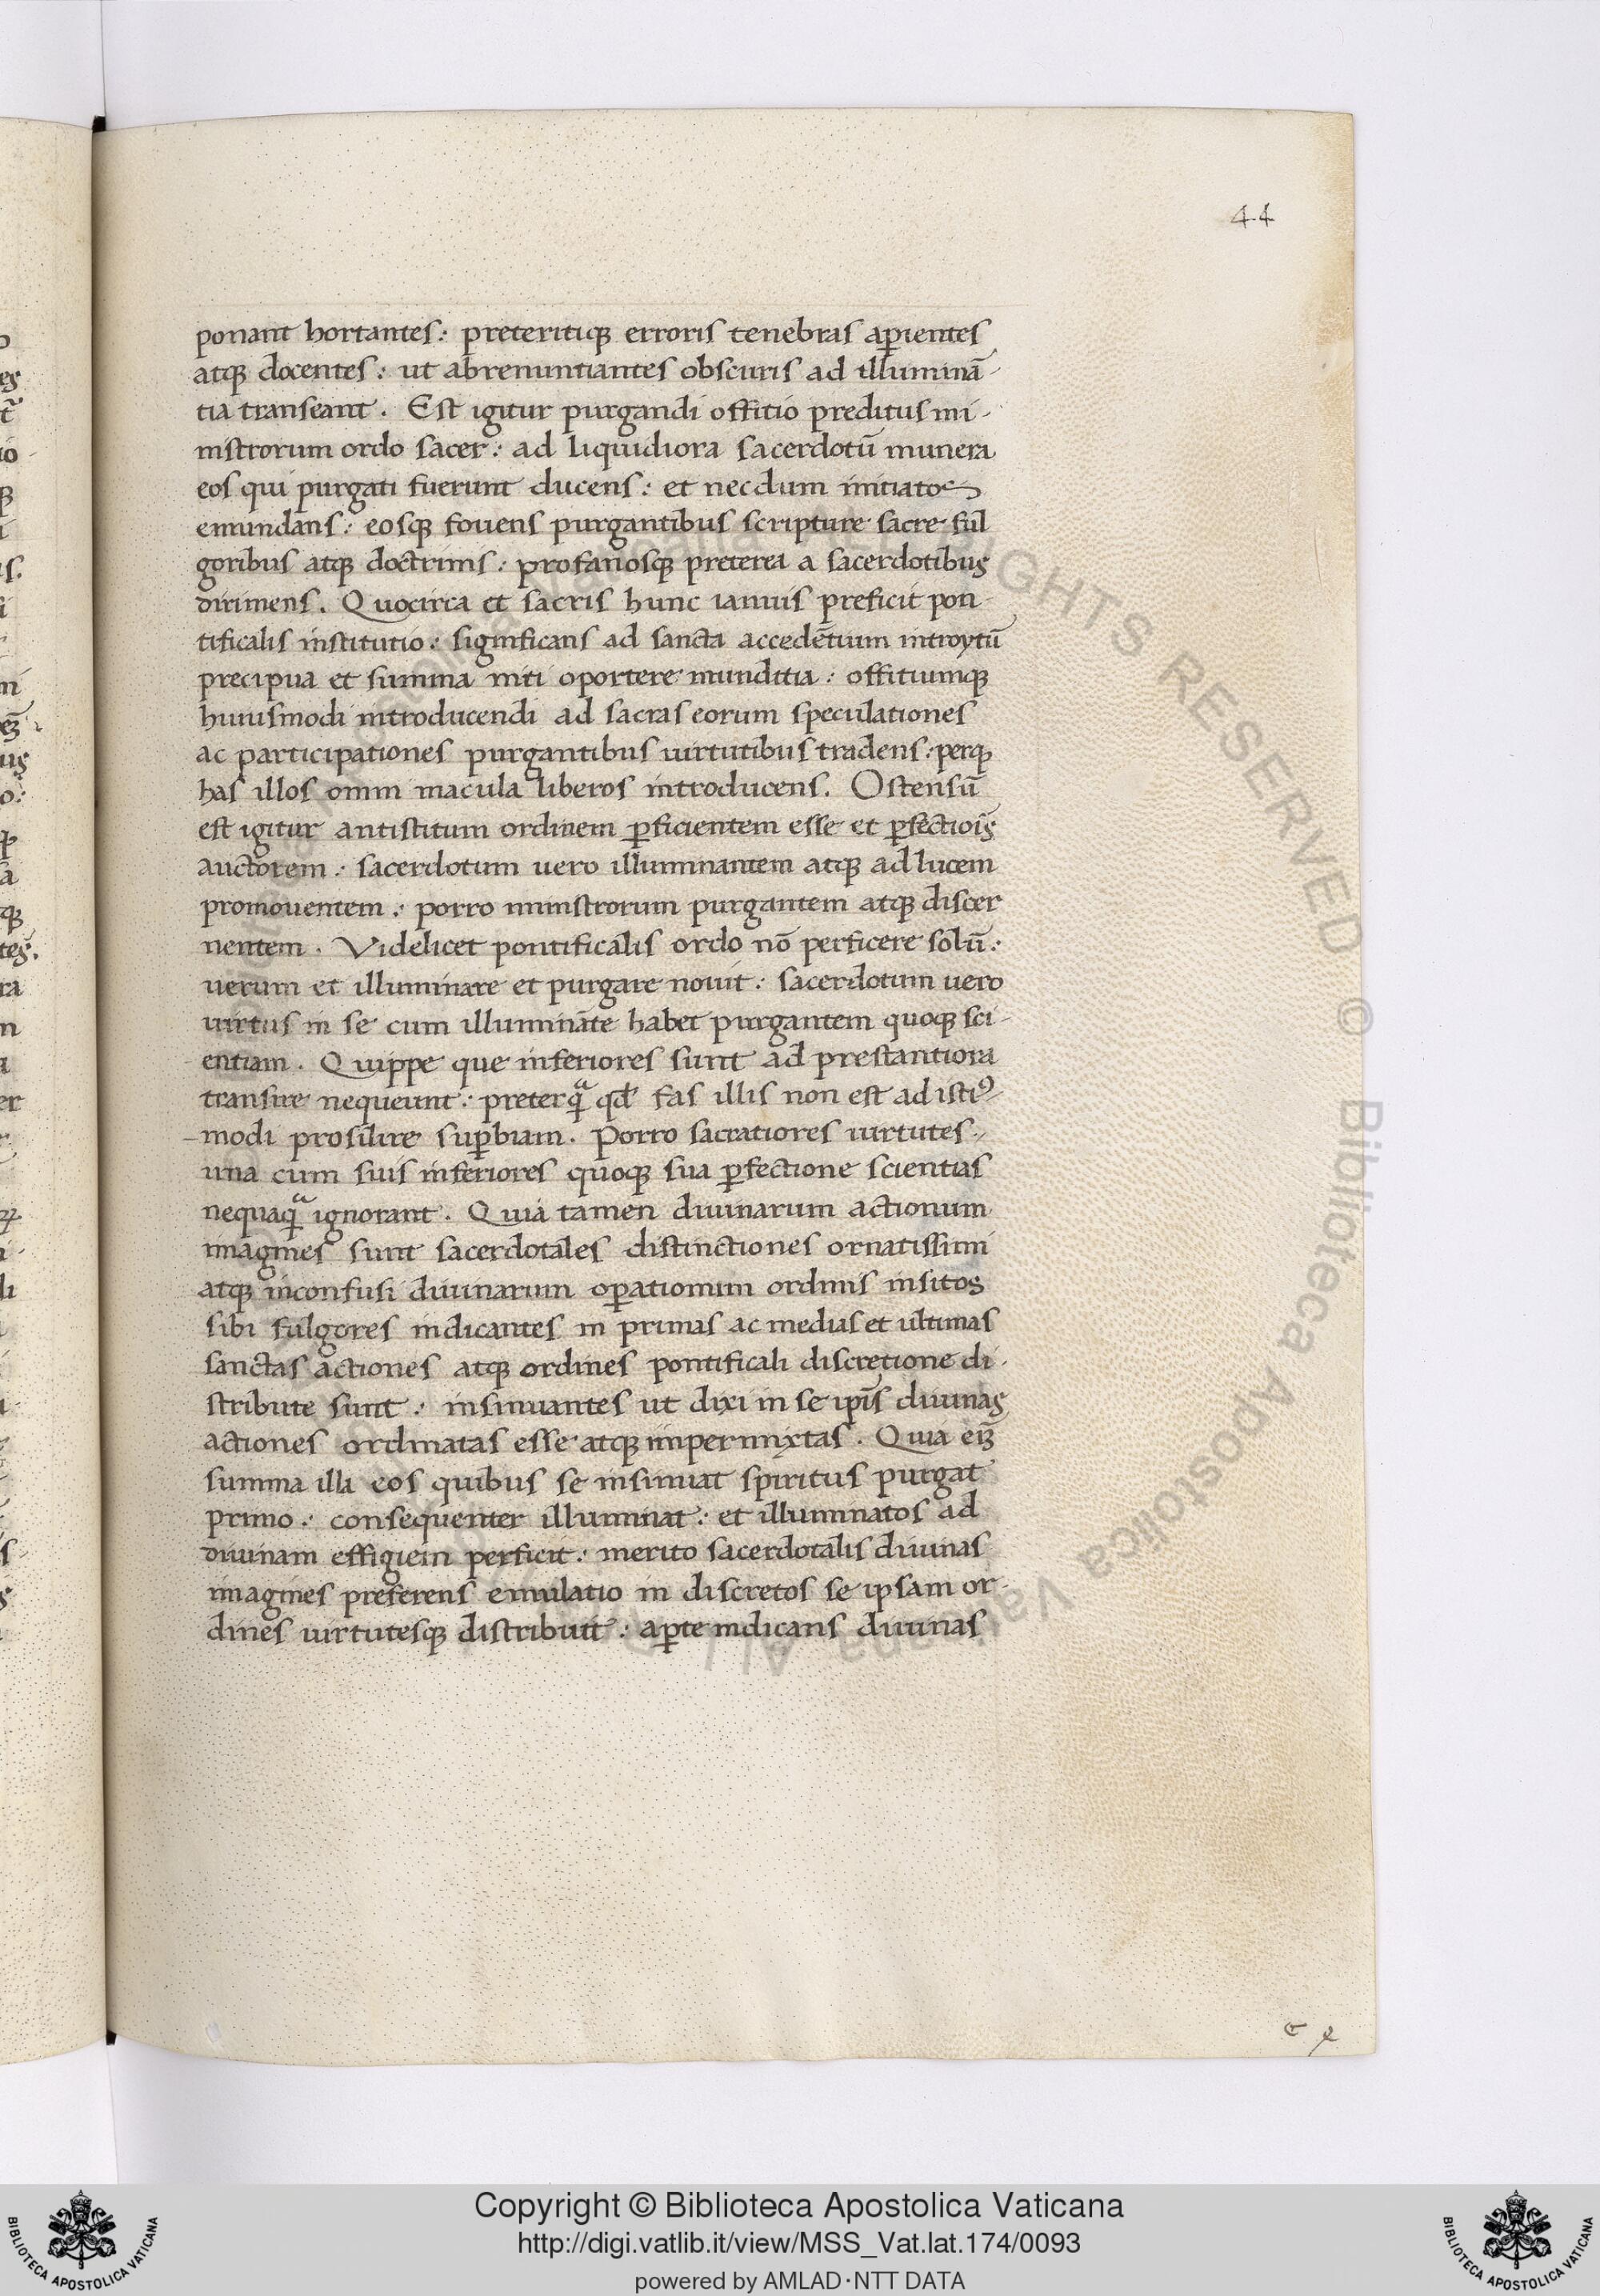 44
ponant hortantes: preteritiqꝫ erroris tenebras aꝑientes
atqꝫ docentes: ut abrenuntiantes obscuris ad illuminā-
tia transeant. Est igitur purgandi offitio preditus mi-
nistrorum ordo sacer: ad liquidiora sacerdotū munera
eos qui purgati fuerunt ducens: et necdum initiatos
emundans: eosqꝫ fovens purgantibus scripture sacre ful
goribus atqꝫ doctrinis: profanosqꝫ preterea a sacerdotibus
dirimens. Quocirca et sacris hunc ianuis preficit pon-
tificalis institutio: significans ad sancta accedētium introytū
precipua et summa niti oportere munditia: offitiumqꝫ
huiusmodi introducendi ad sacras eorum speculationes
ac participationes purgantibus uirtutibus tradens: perqꝫ
has illos omni macula liberos introducens. Ostensū
est igitur antistitum ordinem ꝑficientem esse et ꝑfectiōis
auctorem: sacerdotum uero illuminantem atqꝫ ad lucem
promouentem: porro ministrorum purgantem atqꝫ discer
nentem. Videlicet pontificalis ordo nō perficere solū:
uerum et illuminare et purgare nouit: sacerdotum uero
uirtus in se cum illumināte habet purgantem quoqꝫ sci-
entiam. Quippe que inferiores sunt ad prestantiora
transire nequeunt: preterqᷓ qđ fas illis non est ad istiꝰ-
modi prosilire suꝑbiam. Porro sacratiores uirtutes
una cum suis inferiores quoqꝫ sua ꝑfectione scientias
nequaqᷓ ignorant. Quia tamen diuinarum actionum
imagines sunt sacerdotales distinctiones ornatissimi
atqꝫ inconfusi diuinarum oꝑationum ordinis insitos
sibi fulgores indicantes in primas ac medias et ultimas
sanctas actiones atqꝫ ordines pontificali discretione di-
stribute sunt: insinuantes ut dixi in se ip̄is diuinas
actiones ordinatas esse atqꝫ impermixtas. Quia eīꝫ
summa illa eos quibus se insinuat spiritus purgat
primo: consequenter illuminat: et illuminatos ad
diuinam effigiem perficit: merito sacerdotalis diuinas
imagines preferens emulatio in discretos se ipsam or-
dines uirtutesqꝫ distribuit: aꝑte indicans diuinas
Copyright © Biblioteca Apostolica Vaticana
http://digi.vatlib.it/view/MSS_Vat.lat.174/0093
powered by AMLAD·NTT DATA